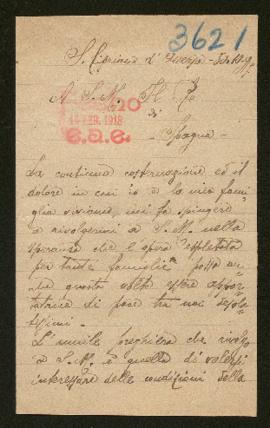 3621
S. Cipriano d' Aversa -
A S. M. Il Re
14 FEB. 1918
di
Spagna -
e.a.e.
La continua costernazione ed il
dolore in cui io e la mia fami
glia viviamo, mi fa spingere
a rivolgermi a S. M. nella
speranza che l'opera espletata
per tante famiglie possa an
che questa volta essere appor
tatrice di pace tra noi desola
tissimi.
L'umile preghiera che rivolgo
a S. M. è quella di volersi
interessare delle condizioni della